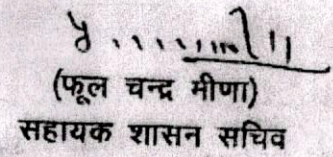 (फूल चन्द्र मीणा)
सहायक शासन सचिव